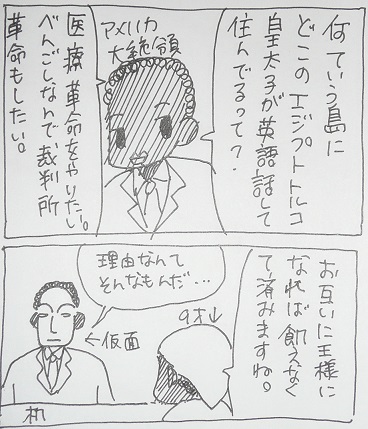 何ていう島に
どこのエジプトトルコ
皇太子が英語話して
住んでるって?
アメリカ
大統領
医療革命をやりたい。
べんごしなんで、裁判所
革命もしたい。
お互いに王様に
なれば飢えなく
て済みますね。
9才↓
理由なんて
そんなもんだ…
←仮面
机